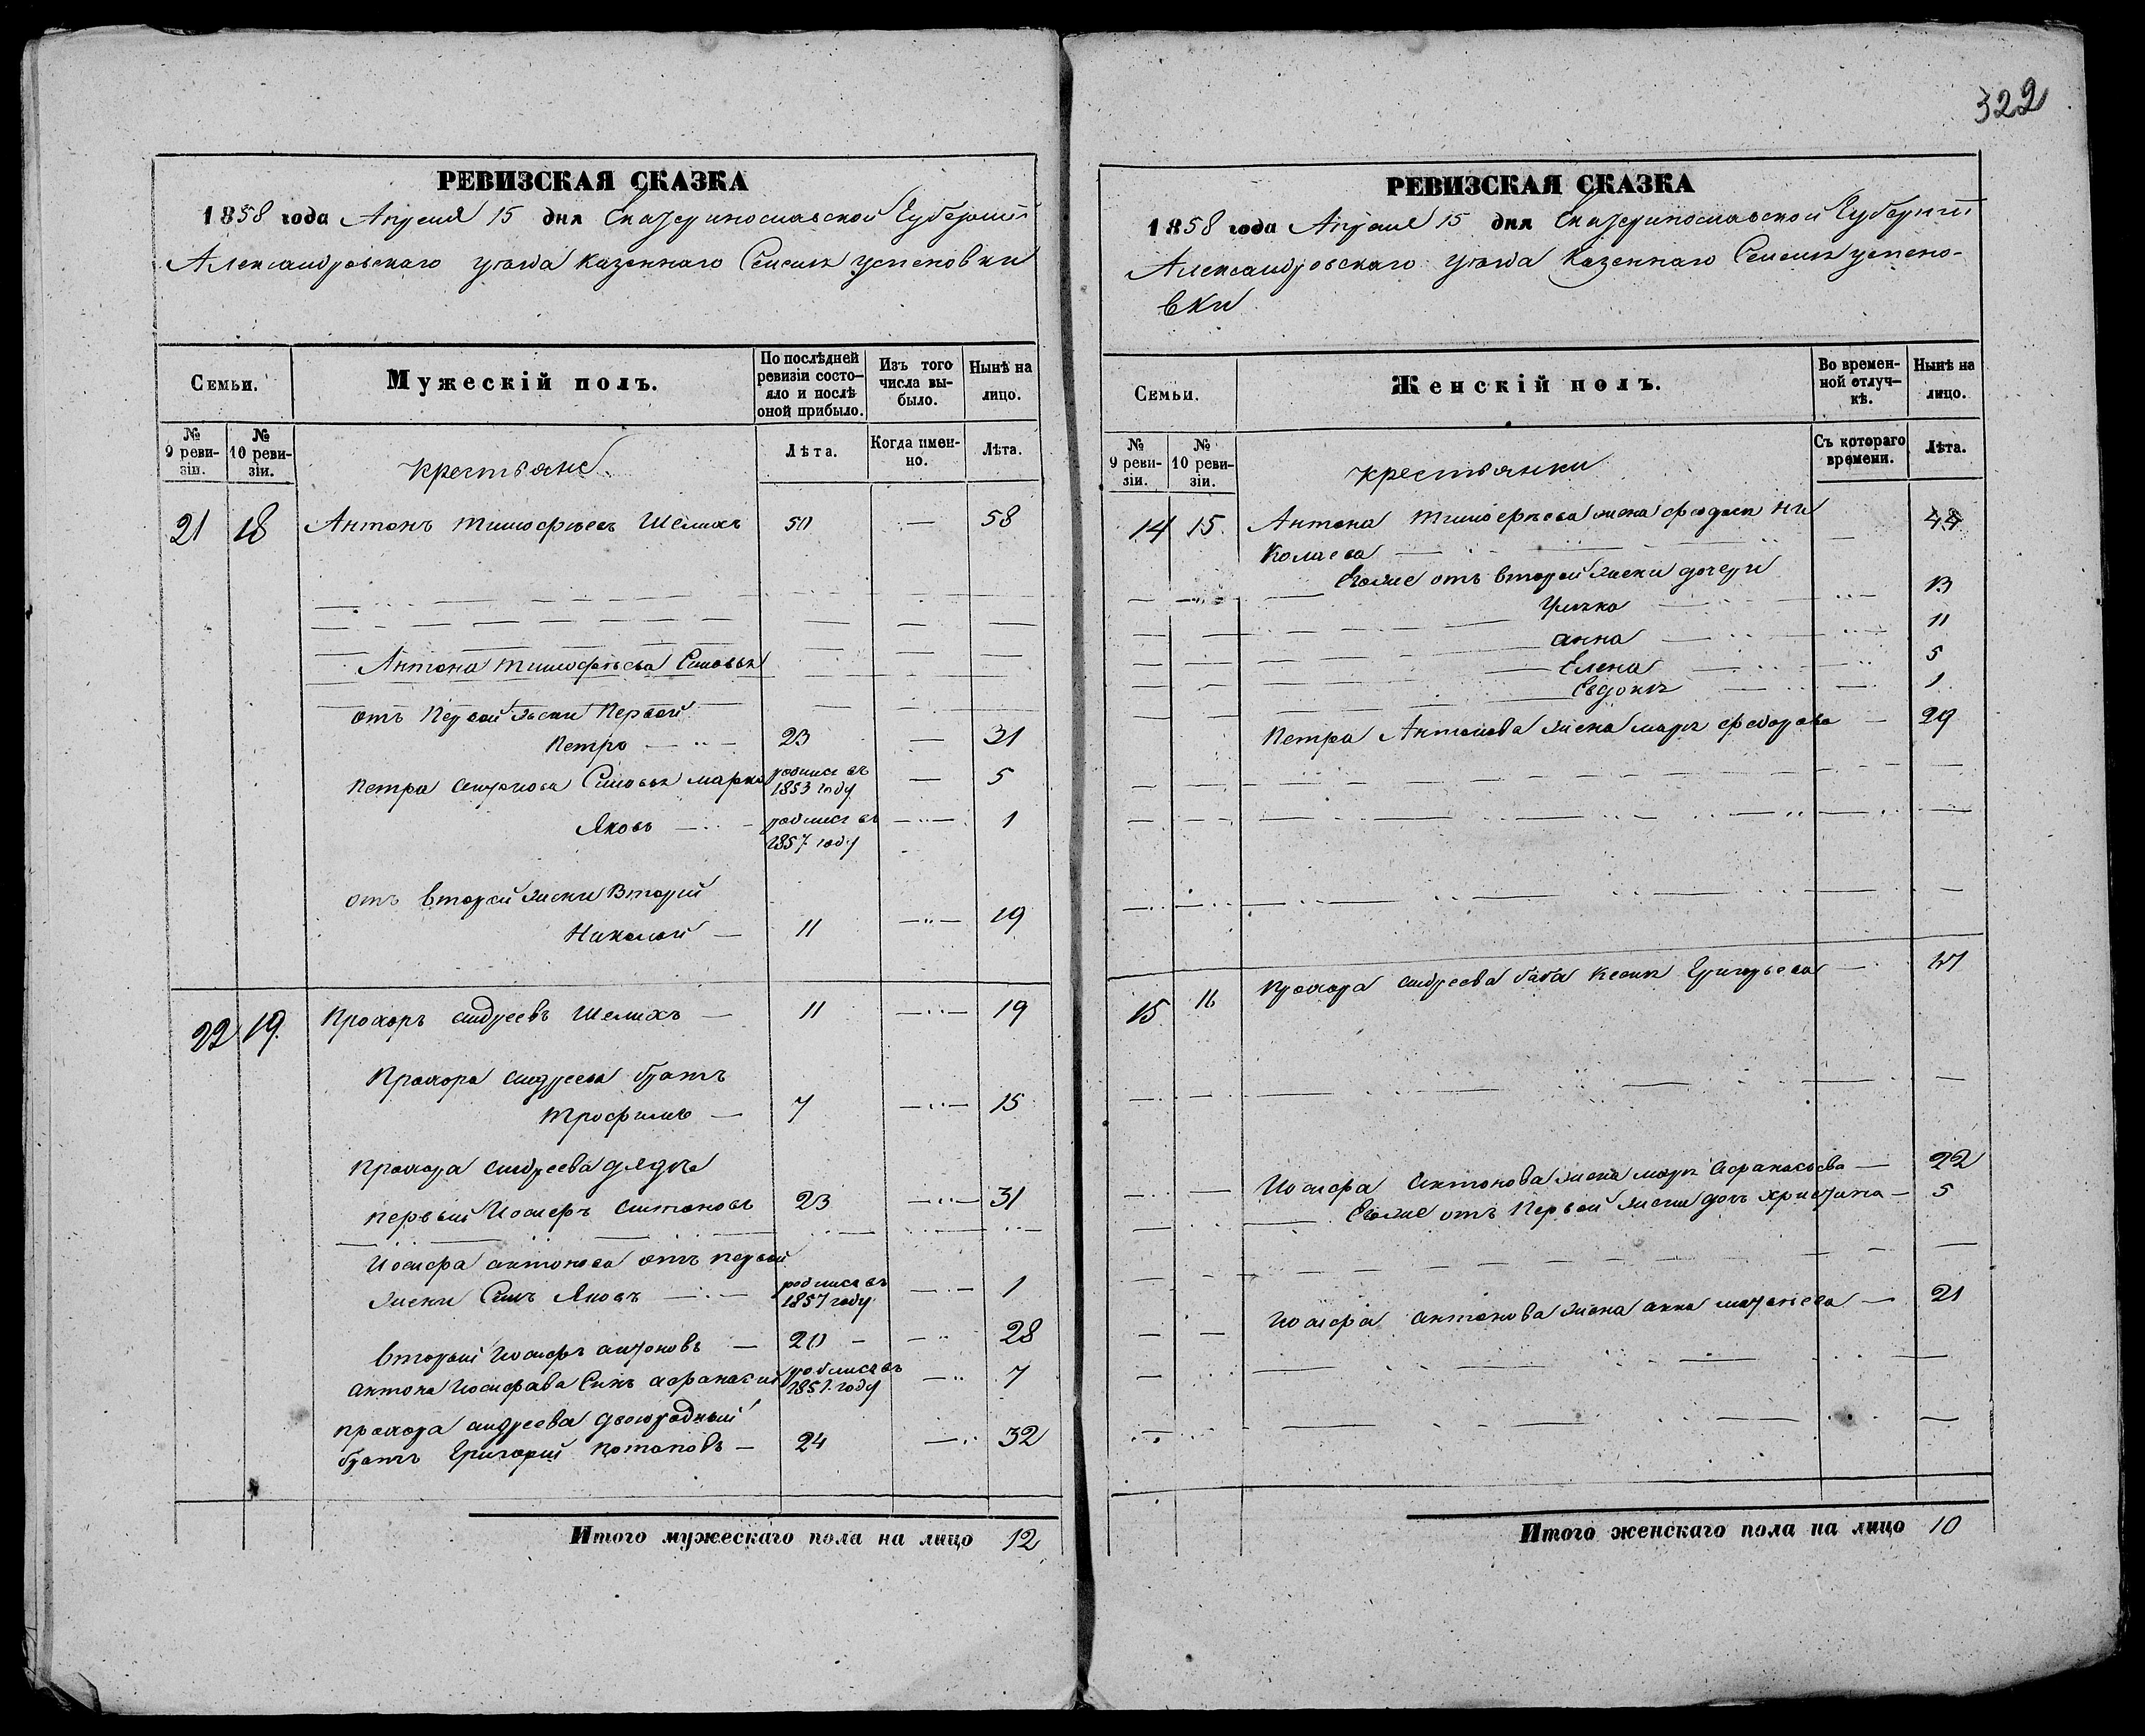 322
РЕВИЗСКАЯ СКАЗКА
1858 года Апреля 15 дня Екатеринославской Губернии
Александровскаго уѣзда Казеннаго Селенія Успеновки
Семьи.
Мужескій полъ.
По послѣдней ревизіи состо-яло и послѣ оной прибыло.
Изъ того числа вы-было.
Нынѣ на лицо.
№ 9 реви-зіи.
№ 10 реви-зіи.
Крестьяне
Лѣта.
Когда имен-но.
Лѣта.
21 18 Антонъ Тимофѣевъ Шелихъ 50 — 58
Антона Тимофѣева Сыновья
отъ Первой жены Первой
Петро 23 — 31
Петра Антонова Сыновья Марко родился въ 1853 году — 5
Яковъ родился въ 1857 году — 1
отъ второй жены Вторый
Николай — 11 — 19
22 19 Прохоръ Андреевъ Шелихъ — 11 — 19
Прохора Андреева братъ
Трофимъ — 7 — 15
Прохора Андреева дядья
первый Иосифъ Антоновъ 23 — 31
Иосифа Антонова отъ первой
жены Сынъ Яковъ родился въ 1857 году — 1
вторый Иосифъ Антоновъ — 20 — 28
Антона Иосифава Сынъ Афанасий родился въ 1851 году — 7
Прохора Андреева двоюродный
братъ Григорий Потаповъ — 24 — 32
Итого мужескаго пола на лицо 12
РЕВИЗСКАЯ СКАЗКА
1858 года Апреля 15 дня Екатеринославской Губернии
Александровскаго уѣзда Казеннаго Селенія Успено-
вки
Семьи.
Женскій полъ.
Во времен-ной отлуч-кѣ.
Нынѣ на лицо.
№ 9 реви-зіи.
№ 10 реви-зіи.
Крестьянки
Съ котораго времени.
Лѣта.
14 15. Антона Тимофѣева жена Федосья Ни
колаева — 44
Егоже отъ второй жены дочери
Улька 13
Анна 11
Елена 5
Евдокия 1
Петра Антонова жена Марья Федорова — 29
15 16 Прохора Андреева баба Ксенья Григорьева —
Иосифа Антонова жена Марья Афанасьева — 22
Егоже отъ Первой жены дочь Христина — 5
Иосифа Антонова жена Анна Матвеева — 21
Итого женскаго пола на лицо 10